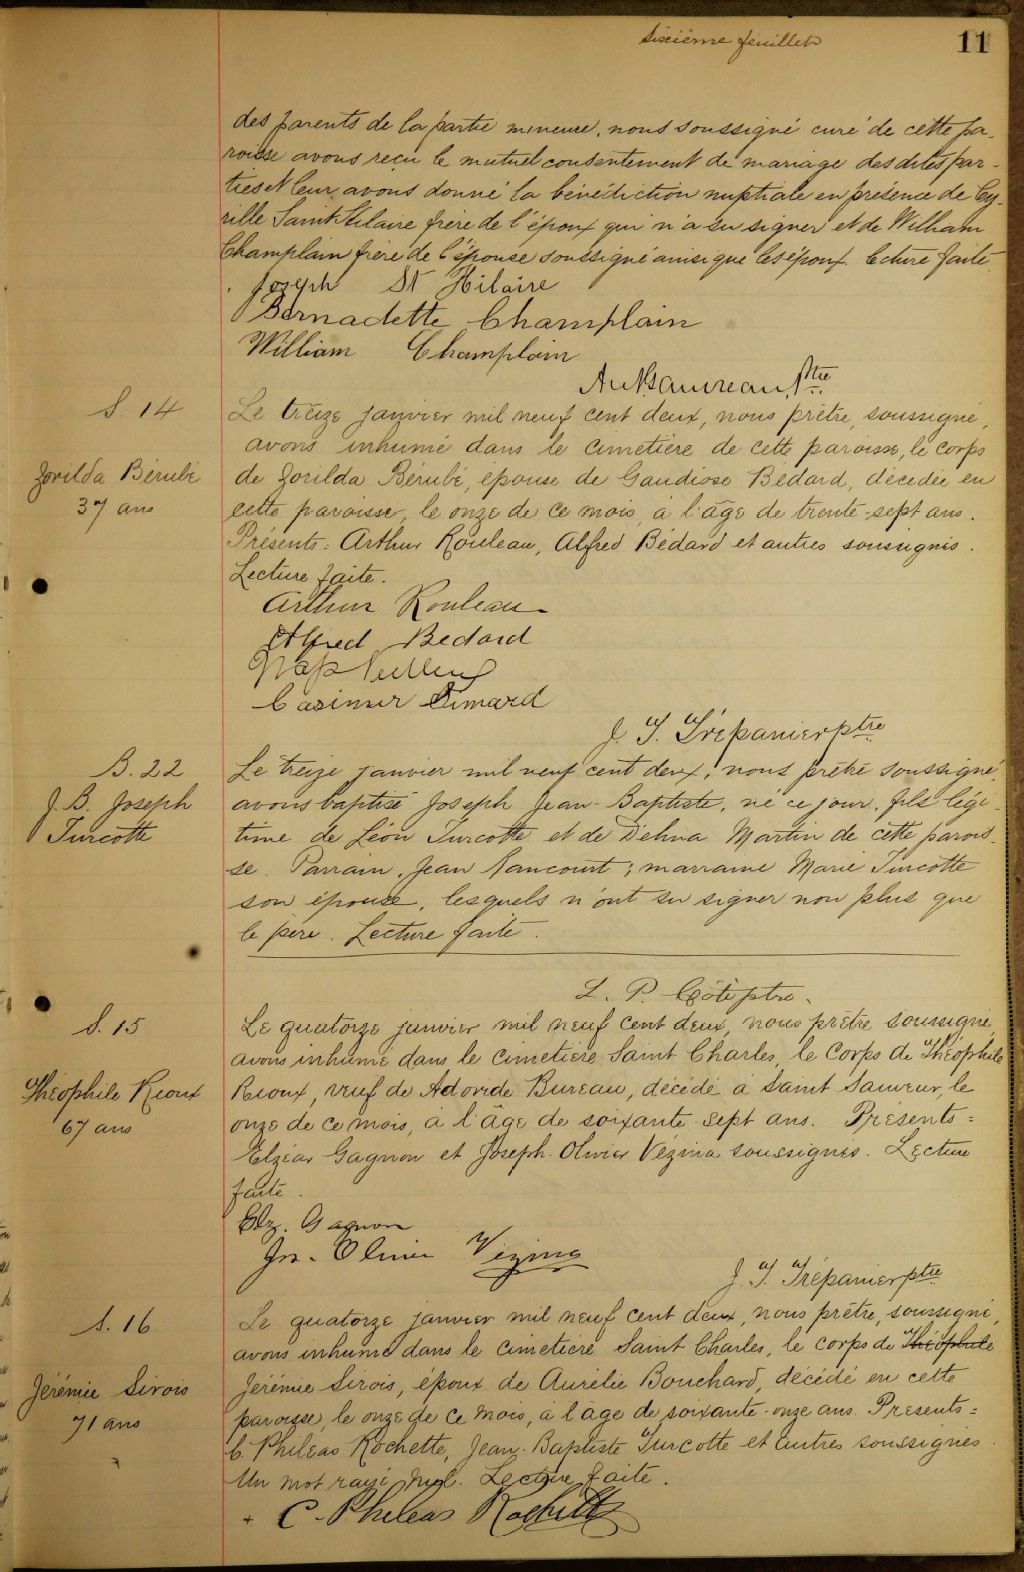 Sixième feuillet
11
des parents de la partie mineure, nous soussigné curé de cette pa-
roisse avons reçu le mutuel consentement de mariage des dites par-
ties et leur avons donné la bénédiction nuptiale en présence de Cy-
rille Saint Hilaire frère de l'époux qui n'a su signer et de William
Champlain frère de l'épouse soussigné ainsi que les époux. Lecture faite
Joseph St Hilaire
Bernadette Champlain
William Champlain
Ptre
S. 14
Zorilda Bérubé
37 ans
Le treize janvier mil neuf cent deux, nous prêtre, soussigné,
avons inhumé dans le cimetière de cette paroisse, le corps
de Zorilda Bérubé, épouse de Gaudiose Bédard, décédée en
cette paroisse, le onze de ce mois, à l'âge de trente-sept ans.
Présents: Arthur Rouleau, Alfred Bédard et autres soussignés.
Lecture faite.
Arthur Rouleau
Alfred Bedard
Nap
Casimir Simard
J. T. Trépanier ptre
B. 22
J. B. Joseph
Turcotte
Le treize janvier mil neuf cent deux, nous prêtre soussigné,
avons baptisé Joseph Jean-Baptiste, né ce jour, fils légi-
time de Léon Turcotte et de Délina Martin de cette parois-
se. Parrain, Jean Vancourt; marraine Marie Turcotte
son épouse, lesquels n'ont su signer non plus que
le père. Lecture faite.
L. P. Côté ptre.
S. 15
Théophile Rioux
67 ans
Le quatorze janvier mil neuf cent deux, nous prêtre soussigné,
avons inhumé dans le cimetière Saint Charles, le corps de Théophile
Rioux, veuf de Bureau, décédé à Saint Sauveur, le
onze de ce mois, à l'âge de soixante-sept ans. Présents =
Elzéar Gagnon et Joseph-Olivier Vézina soussignés. Lecture
faite.
Elz. Gagnon
Jos-Olivier Vezina
J. T. Trépanier ptre
S. 16
Jérémie Sirois
71 ans
Le quatorze janvier mil neuf cent deux, nous prêtre, soussigné,
avons inhumé dans le cimetière Saint Charles, le corps de Théophile
Jérémie Sirois, époux de Aurélie Bouchard, décédé en cette
paroisse, le onze de ce mois, à l'âge de soixante-onze ans. Présents =
C. Philéas Rochette, Jean-Baptiste Turcotte et autres soussignés.
Un mot rayé nul. Lecture faite.
C-Phileas Rochette